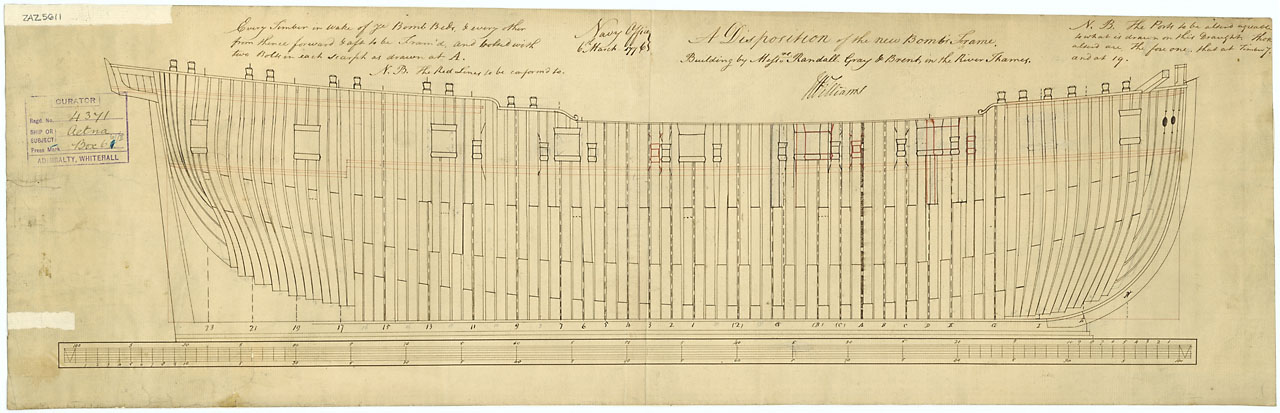 ZAZ5611
Every Timber in wake of ye Bomb Beds, & every other
from thence forward & aft to be Fram'd, and bolted with
two Bolts in each Scarph as drawn at R.
N.B. The Red Lines to be conform'd to.
Navy Office
March
A Disposition of the new Bombs Frame,
Building by Messrs. Randall Gray & Brent, in the River Thames.
JWilliams
N.B. The Ports to be alter'd agreeable
to what is drawn on this Draught, those
alter'd are the fore one, that at Timber 7,
and at 19.
CURATOR
Regd. No. 4371
SHIP OR SUBJECT: Aetna
Press Mark Box 61
ADMIRALTY, WHITEHALL
23 21 19 17 15 13 11 9 7 6 5 4 3 2 1 (2) (B) (C) A B C D E G I